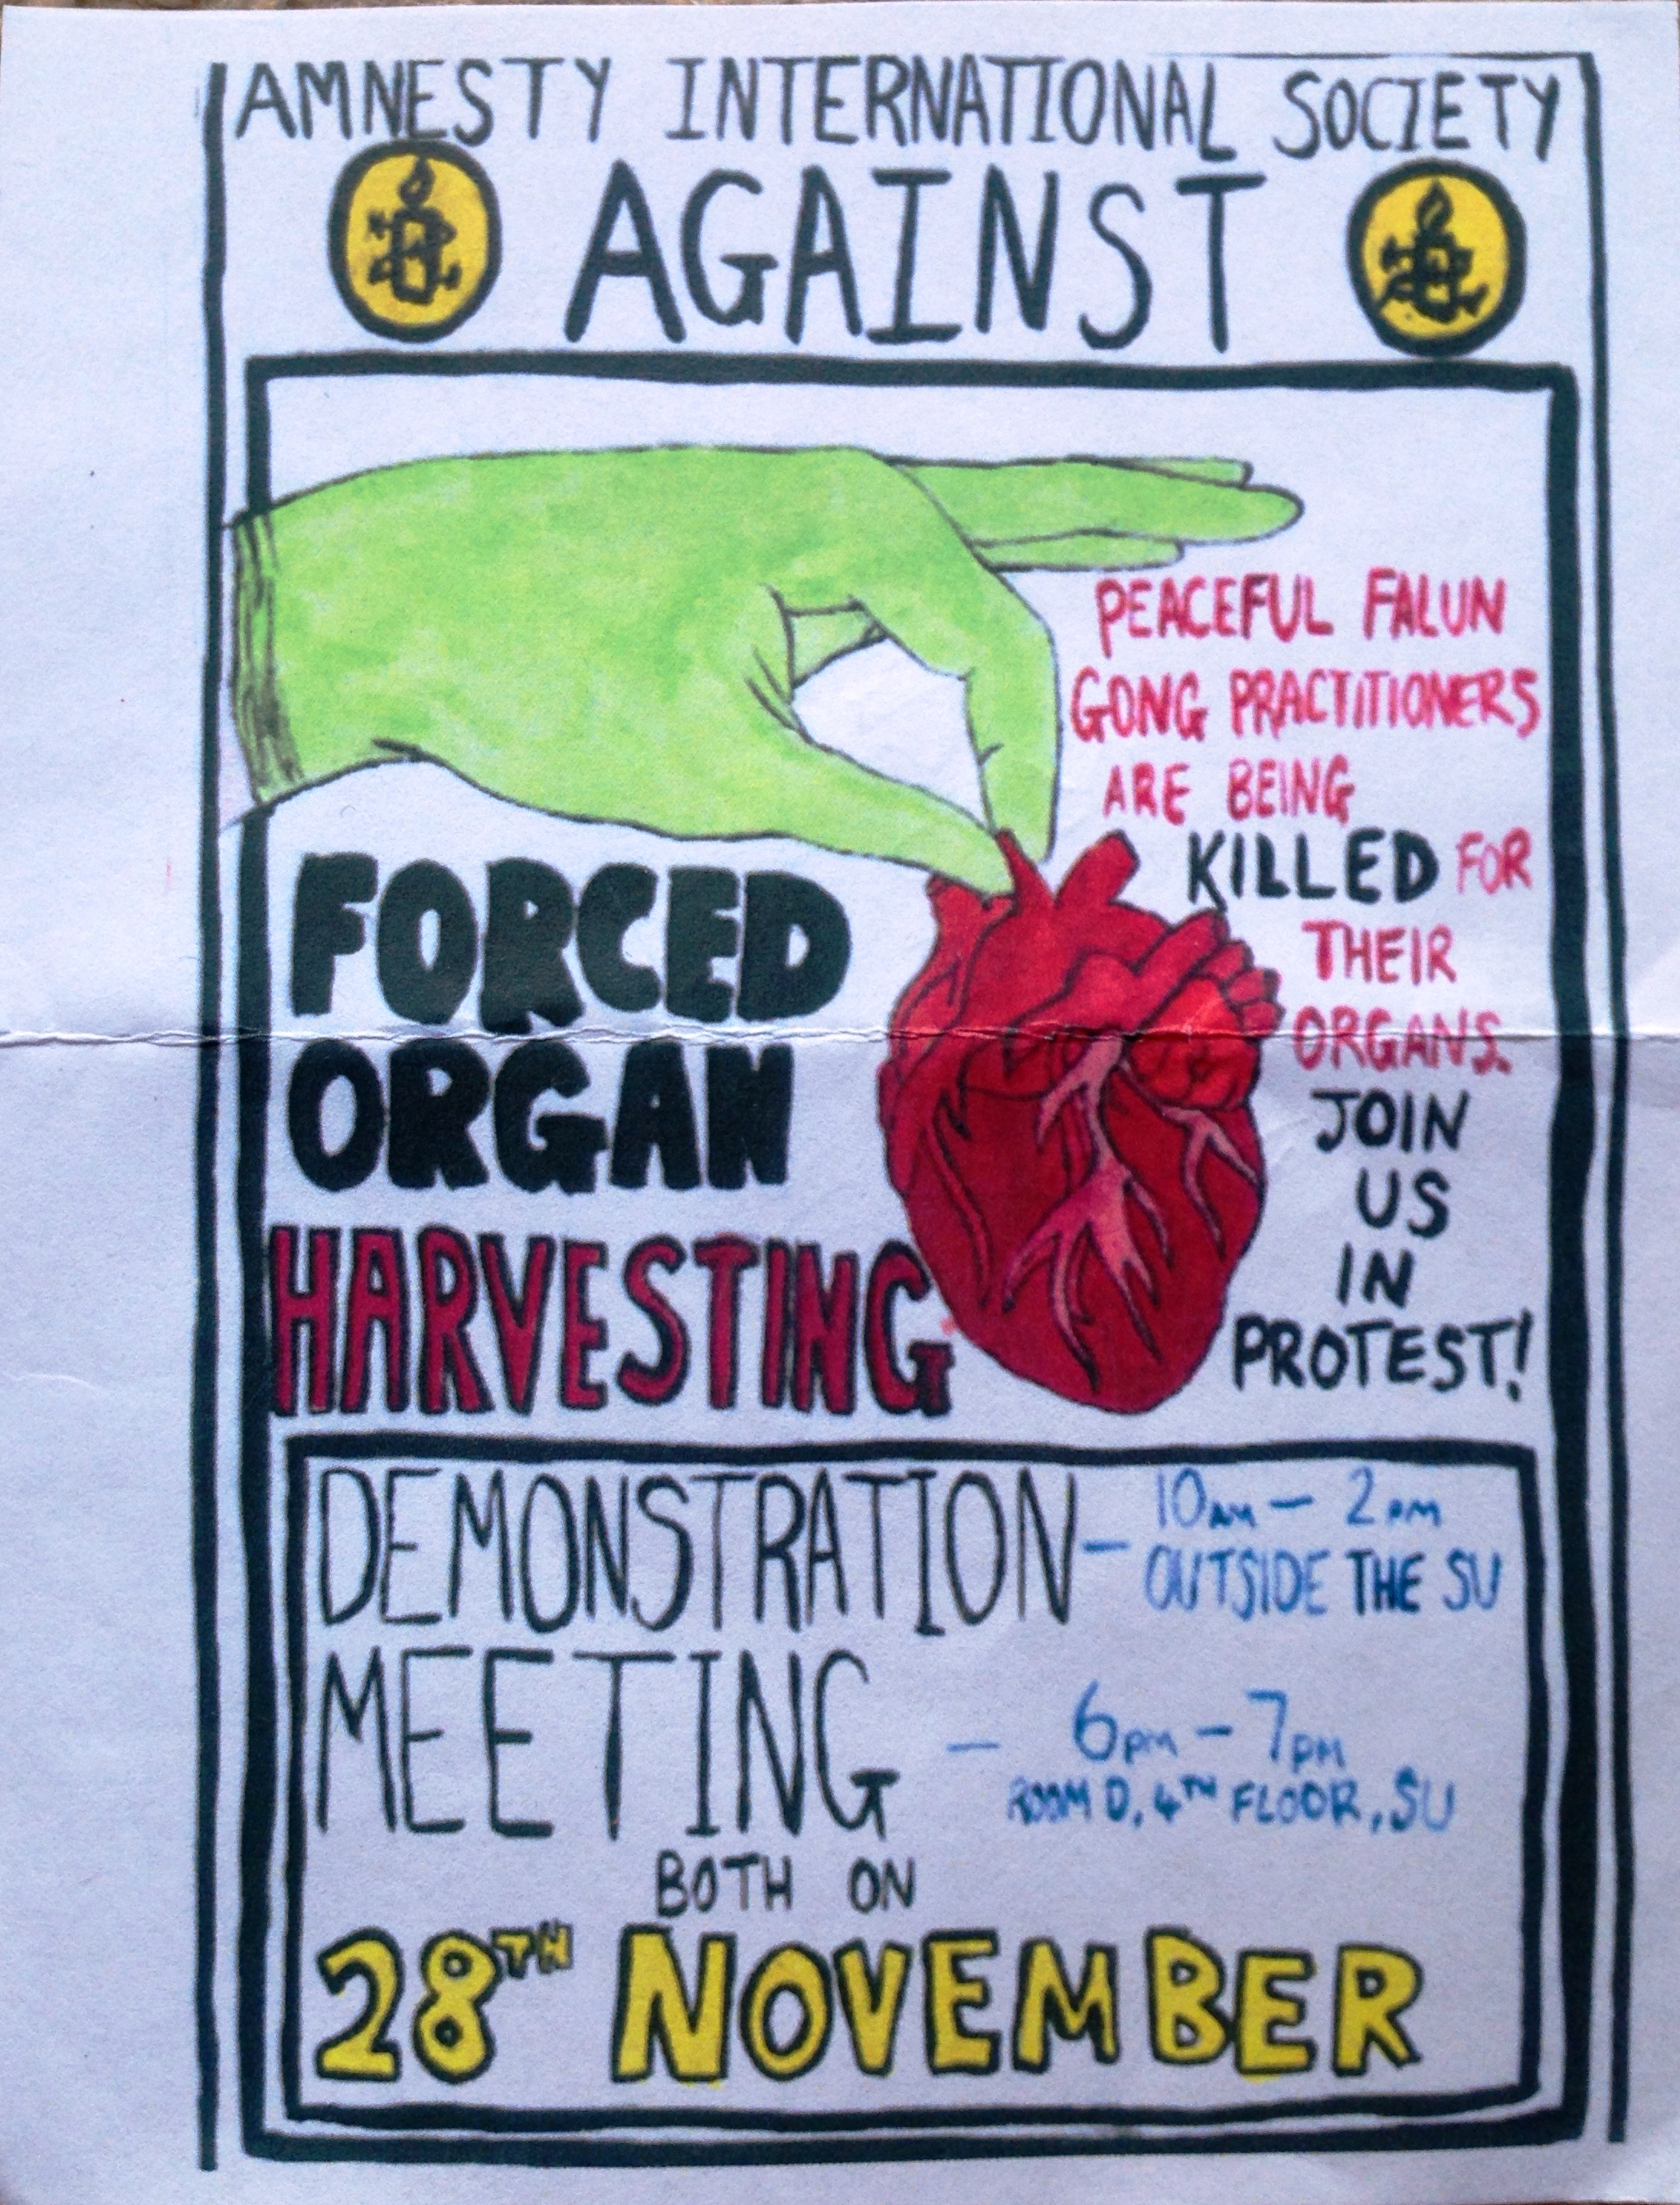 AMNESTY INTERNATIONAL SOCIETY
AGAINST
PEACEFUL FALUN
GONG PRACTITIONERS
ARE BEING
KILLED FOR
THEIR
ORGANS.
JOIN
US
IN
PROTEST!
FORCED
ORGAN
HARVESTING
DEMONSTRATION - 10AM - 2PM
OUTSIDE THE SU
MEETING - 6PM - 7PM
ROOM D, 4TH FLOOR, SU
BOTH ON
28TH NOVEMBER